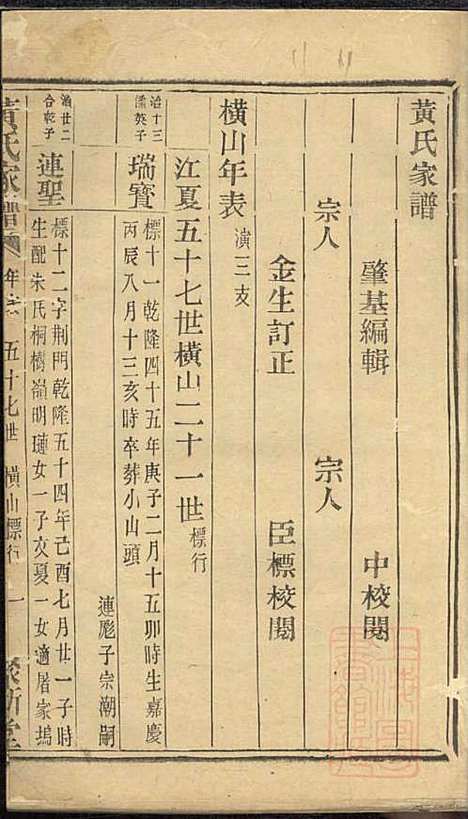 黃氏家譜
肇基編輯 中校閱
宗人 宗人
金生訂正 臣標校閱
橫山年表 演三支
江夏五十七世橫山二十一世 標行
治十三
瑞寶
標十一乾隆四十五年庚子二月十五卯時生嘉慶
丙辰八月十三亥時卒葬小山頭
連彪子宗潮嗣
合乾子
連聖
標十二字荆門乾隆五十四年己酉七月廿一子時
生配朱氏桐樹嶺明璉女一子文夏一女適屠家塢
黃氏家譜
五十七世 橫山標行 一